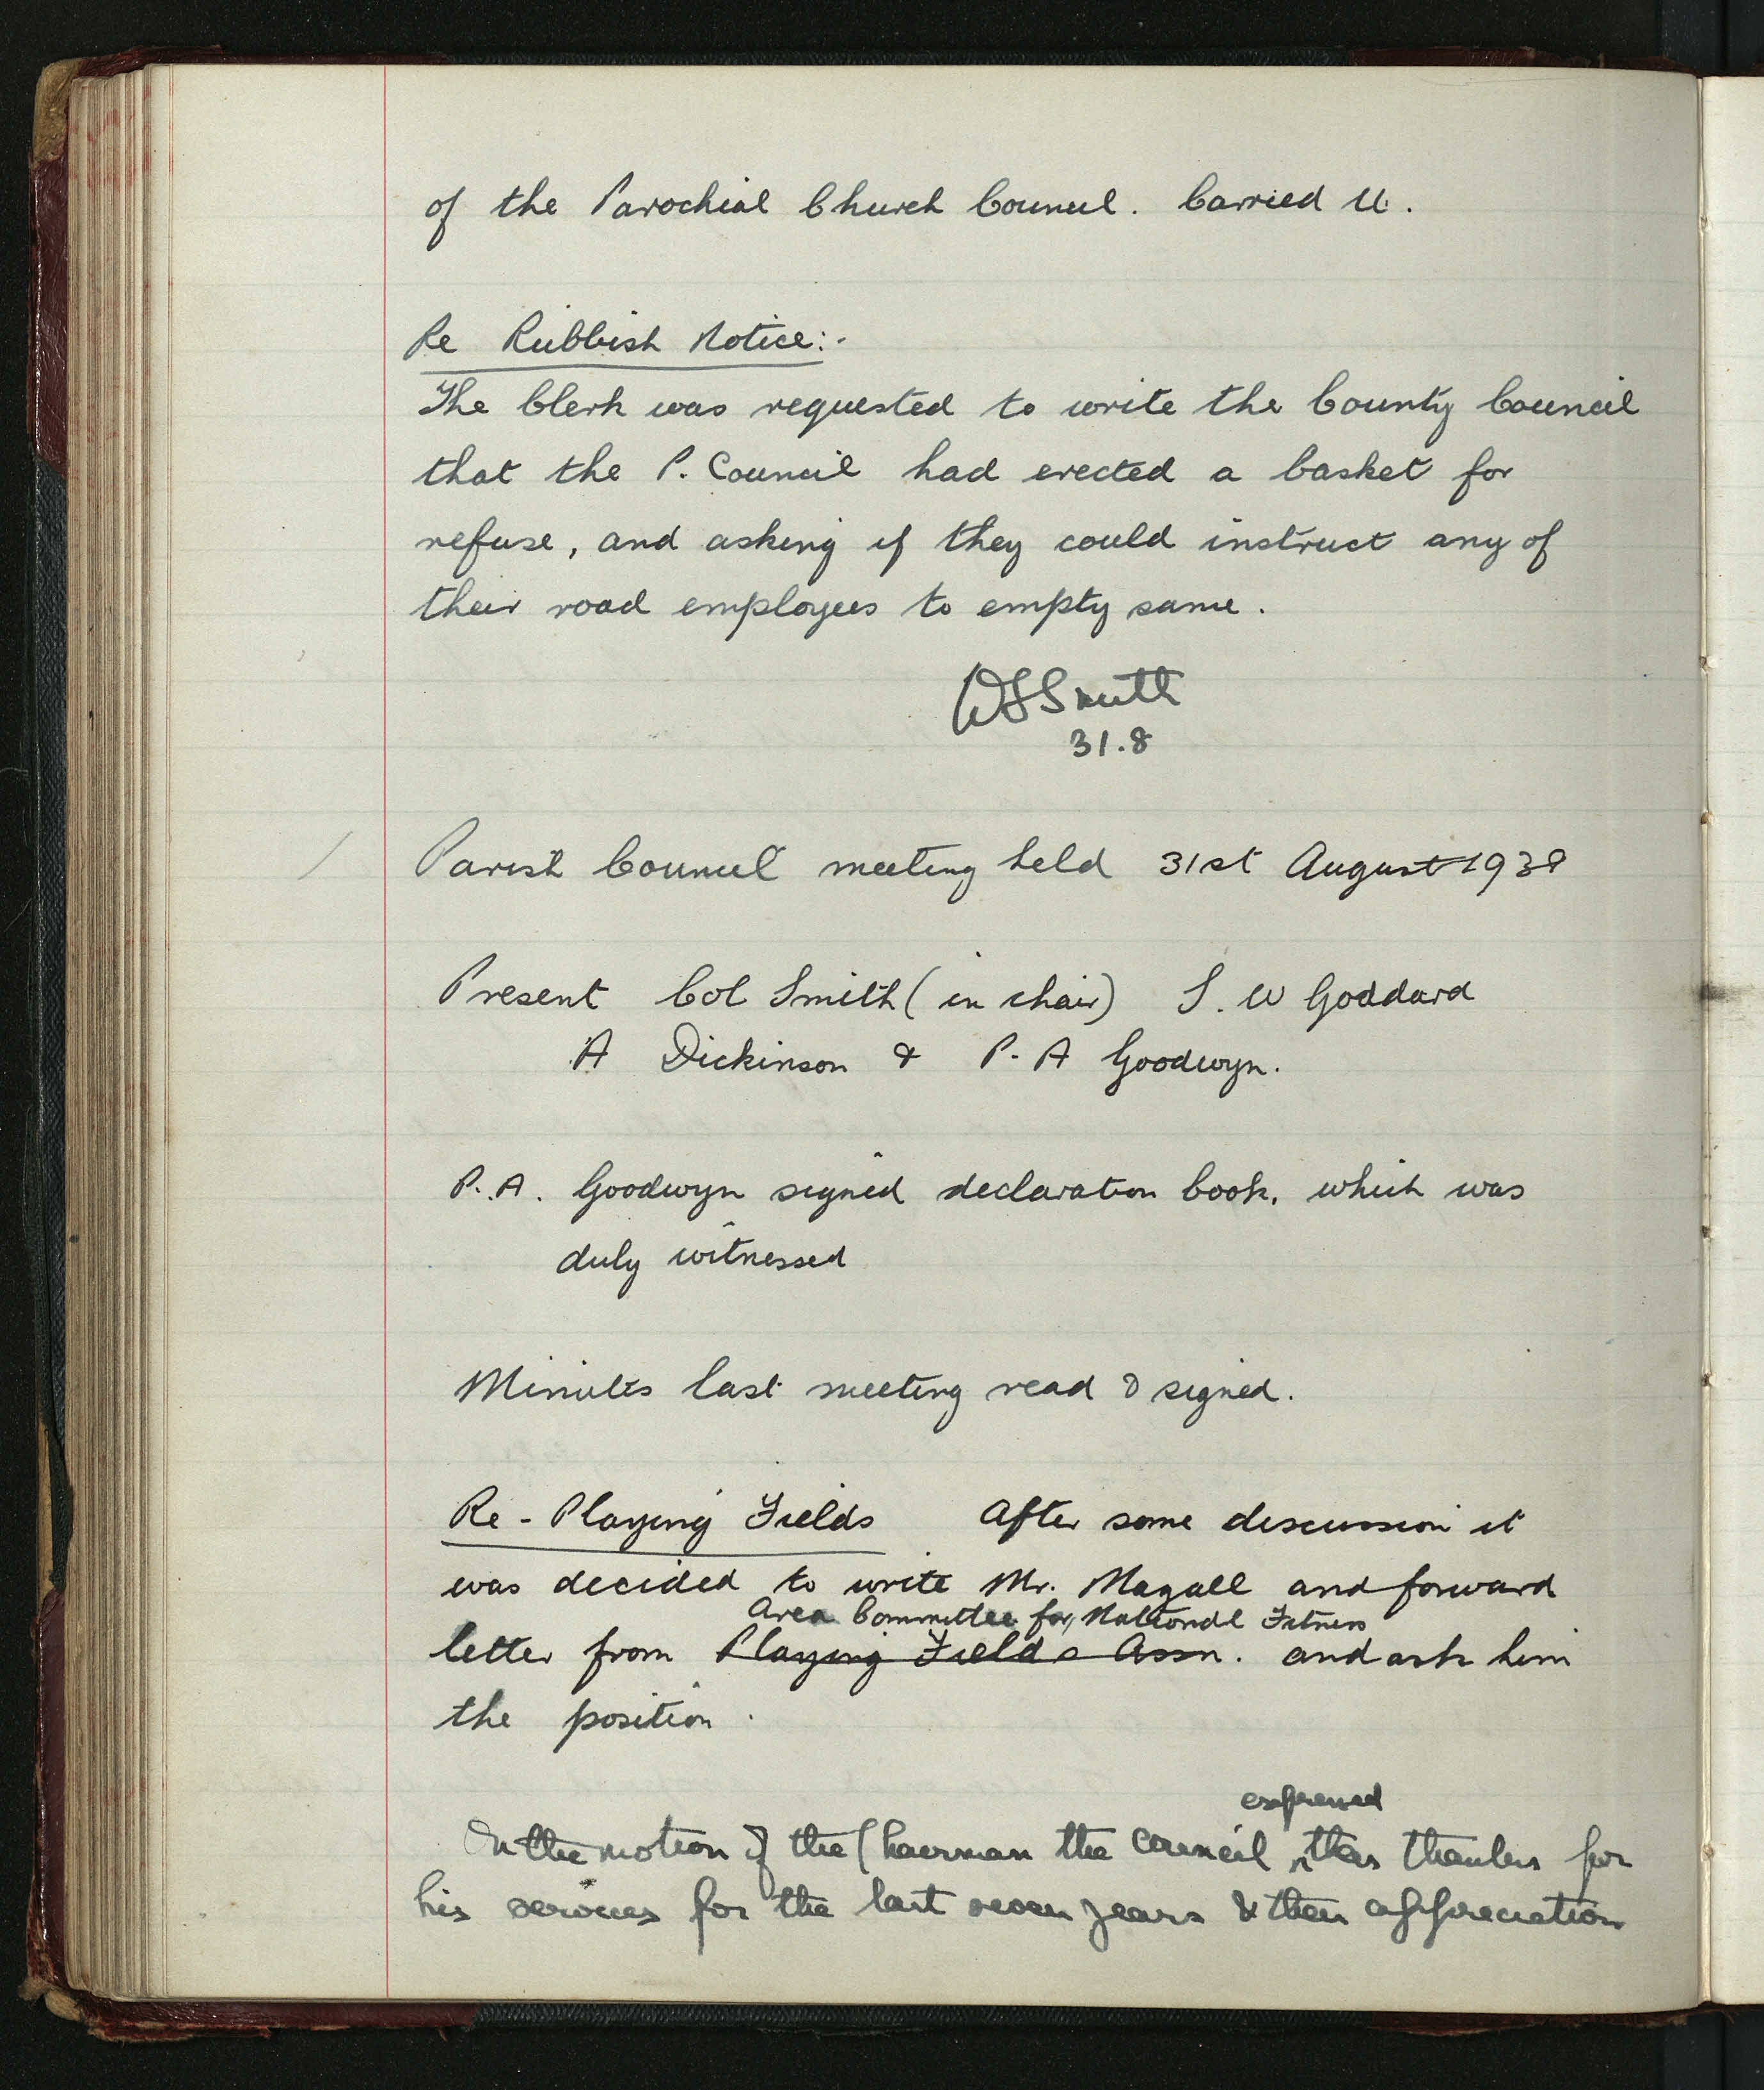 of the Parochial Church Council. Carried U.
Re Rubbish Notice:-
The Clerk was requested to write the County Council
that the P. Council had erected a basket for
refuse, and asking if they could instruct any of
their road employees to empty same.
WSSmith
31.8
Parish Council meeting held 31st August 1938
Present Col Smith (in chair) S. W Goddard
A Dickinson & P. A Goodwyn.
P. A. Goodwyn signed declaration book, which was
duly witnessed
Minutes last meeting read & signed.
Re - Playing Fields After some discussion it
was decided to write Mr. Magall and forward
Area Committee for National Fitness
letter from Playing Fields Assn. and ask him
the position.
expressed
On the motion of the Chairman the Council their thanks for
his services for the last seven years & their appreciation